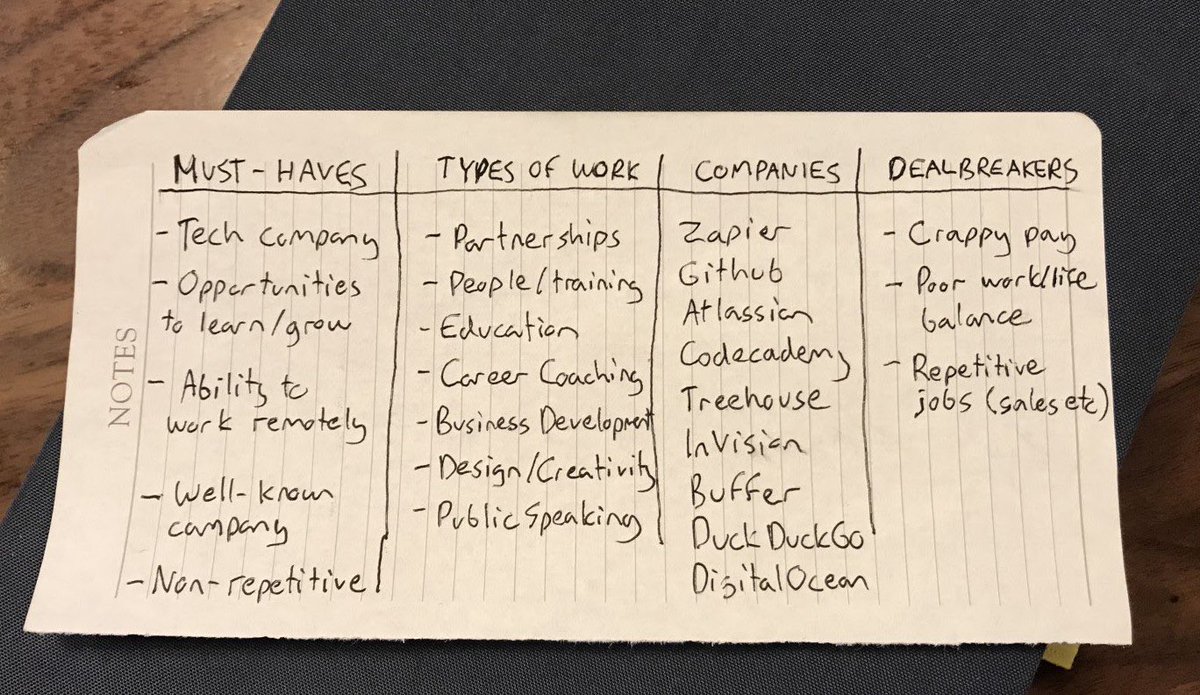 MUST-HAVES
TYPES OF WORK
COMPANIES
DEALBREAKERS
- Tech company
- Opportunities
to learn/grow
- Ability to
work remotely
- Well-known
company
- Non-repetitive
- Partnerships
- People/training
- Education
- Career Coaching
- Business Development
- Design/Creativity
- Public Speaking
Zapier
Github
Atlassian
Codecademy
Treehouse
InVision
Buffer
DuckDuckGo
DigitalOcean
- Crappy pay
- Poor work/life
balance
- Repetitive
jobs (sales etc)
NOTES